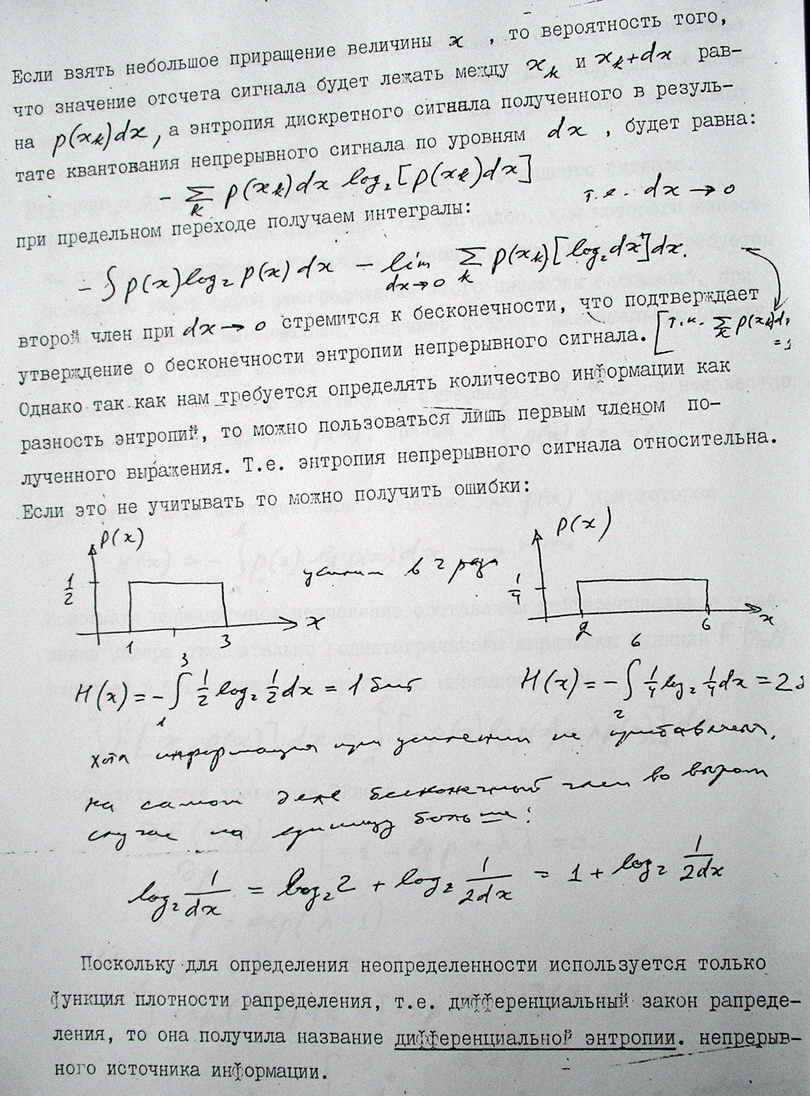 Если взять небольшое приращение величины x , то вероятность того,
что значение отсчета сигнала будет лежать между xₖ и xₖ+dx рав-
на p(xₖ)dx, а энтропия дискретного сигнала полученного в резуль-
тате квантования непрерывного сигнала по уровням dx , будет равна:
- ∑ₖ p(xₖ)dx log₂[p(xₖ)dx]
т.е. dx → 0
при предельном переходе получаем интегралы:
- ∫ p(x) log₂ p(x) dx - lim dx→0 ∑ₖ p(xₖ)[log₂dx]dx.
второй член при dx → 0 стремится к бесконечности, что подтверждает
утверждение о бесконечности энтропии непрерывного сигнала. [т.к. ∑ₖ p(xₖ)d
=1
Однако так как нам требуется определять количество информации как
разность энтропий, то можно пользоваться лишь первым членом по-
лученного выражения. Т.е. энтропия непрерывного сигнала относительна.
Если это не учитывать то можно получить ошибки:
P(x)
1/2
1 3 x
усилим в 2 раза
P(x)
1/4
2 6 x
H(x) = - ∫₁³ 1/2 log₂ 1/2 dx = 1 бит
H(x) = - ∫₂⁶ 1/4 log₂ 1/4 dx = 2
хотя информация при усилении не прибавляется,
на самом деле бесконечный член во втором
случае на единицу больше:
log₂ 1/dx = log₂2 + log₂ 1/2dx = 1 + log₂ 1/2dx
Поскольку для определения неопределенности используется только
функция плотности рапределения, т.е. дифференциальный закон рапреде-
ления, то она получила название дифференциальной энтропии. непрерыв-
ного источника информации.